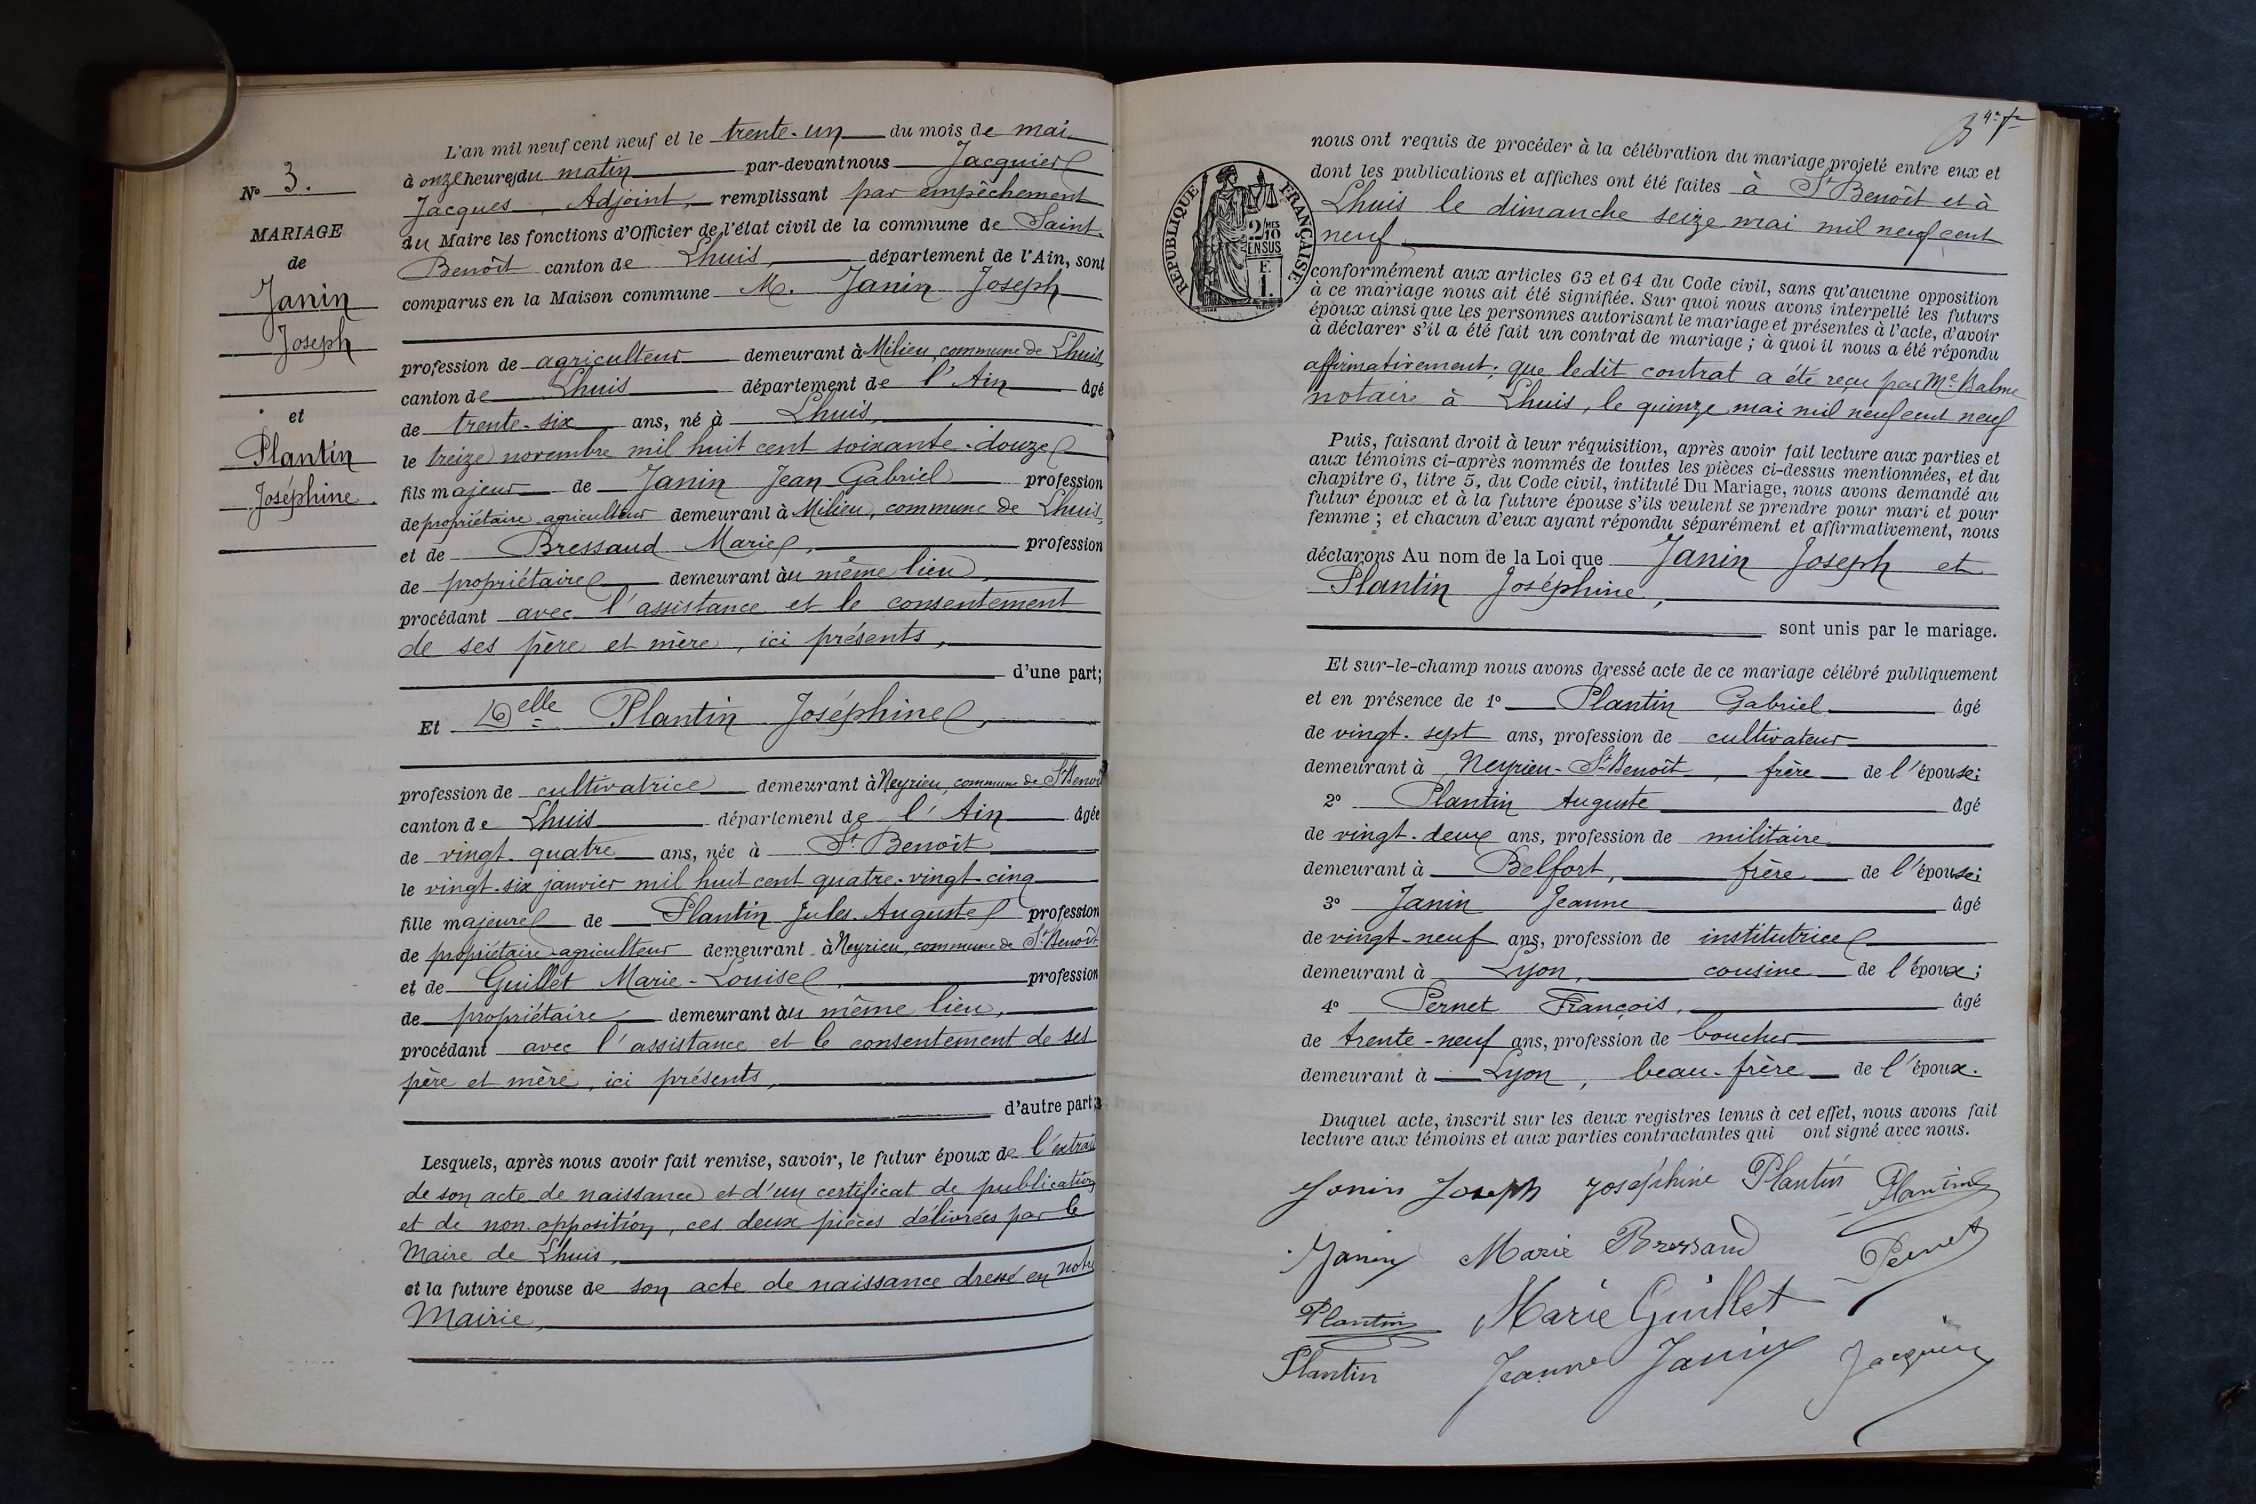 N° 3.
MARIAGE
de
Janin
Joseph
et
Plantin
Joséphine.
L'an mil neuf cent neuf et le trente-un du mois de mai
à onze heures du matin par-devant nous Jacquier
Jacques, Adjoint, remplissant par empêchement
du Maire les fonctions d'Officier de l'état civil de la commune de Saint-
Benoît canton de Lhuis, département de l'Ain, sont
comparus en la Maison commune M. Janin Joseph
profession de agriculteur demeurant à Milieu, commune de Lhuis,
canton de Lhuis département de l'Ain âgé
de trente-six ans, né à Lhuis,
le treize novembre mil huit cent soixante-douze
fils majeur de Janin Jean Gabriel profession
de propriétaire agriculteur demeurant à Milieu, commune de Lhuis,
et de Bressaud Marie, profession
de propriétaire demeurant au même lieu,
procédant avec l'assistance et le consentement
de ses père et mère, ici présents,
d'une part;
Et Delle Plantin Joséphine,
profession de cultivatrice demeurant à Neyrieu, commune de St Benoît
canton de Lhuis département de l'Ain âgée
de vingt-quatre ans, née à St Benoît
le vingt-six janvier mil huit cent quatre-vingt-cinq
fille majeure de Plantin Jules Auguste profession
de propriétaire-agriculteur demeurant à Neyrieu, commune de St Benoît
et de Guillet Marie-Louise, profession
de propriétaire demeurant au même lieu,
procédant avec l'assistance et le consentement de ses
père et mère, ici présents,
d'autre part;
Lesquels, après nous avoir fait remise, savoir, le futur époux de l'extrait
de son acte de naissance et d'un certificat de publication
et de non-opposition, ces deux pièces délivrées par le
Maire de Lhuis,
et la future épouse de son acte de naissance dressé en notre
Mairie,
nous ont requis de procéder à la célébration du mariage projeté entre eux et
dont les publications et affiches ont été faites à St Benoît et à
Lhuis le dimanche seize mai mil neuf cent
neuf
RÉPUBLIQUE FRANÇAISE
2/10MES
EN SUS
F.
1.
conformément aux articles 63 et 64 du Code civil, sans qu'aucune opposition
à ce mariage nous ait été signifiée. Sur quoi nous avons interpellé les futurs
époux ainsi que les personnes autorisant le mariage et présentes à l'acte, d'avoir
à déclarer s'il a été fait un contrat de mariage; à quoi il nous a été répondu
affirmativement; que ledit contrat a été reçu par Me Balme
notaire à Lhuis, le quinze mai mil neuf cent neuf
Puis, faisant droit à leur réquisition, après avoir fait lecture aux parties et
aux témoins ci-après nommés de toutes les pièces ci-dessus mentionnées, et du
chapitre 6, titre 5, du Code civil, intitulé Du Mariage, nous avons demandé au
futur époux et à la future épouse s'ils veulent se prendre pour mari et pour
femme; et chacun d'eux ayant répondu séparément et affirmativement, nous
déclarons Au nom de la Loi que Janin Joseph et
Plantin Joséphine,
sont unis par le mariage.
Et sur-le-champ nous avons dressé acte de ce mariage célébré publiquement
et en présence de 1° Plantin Gabriel âgé
de vingt-sept ans, profession de cultivateur
demeurant à Neyrieu-St Benoît, frère de l'épouse;
2° Plantin Auguste âgé
de vingt-deux ans, profession de militaire
demeurant à Belfort, frère de l'épouse;
3° Janin Jeanne âgé
de vingt-neuf ans, profession de institutrice
demeurant à Lyon, cousine de l'époux;
4° Pernet François, âgé
de trente-neuf ans, profession de boucher
demeurant à Lyon, beau-frère de l'époux.
Duquel acte, inscrit sur les deux registres tenus à cet effet, nous avons fait
lecture aux témoins et aux parties contractantes qui ont signé avec nous.
Janin Joseph Joséphine Plantin Plantin
Janin Marie Bressaud Pernet
Plantin Marie Guillet
Plantin Jeanne Janin Jacquier